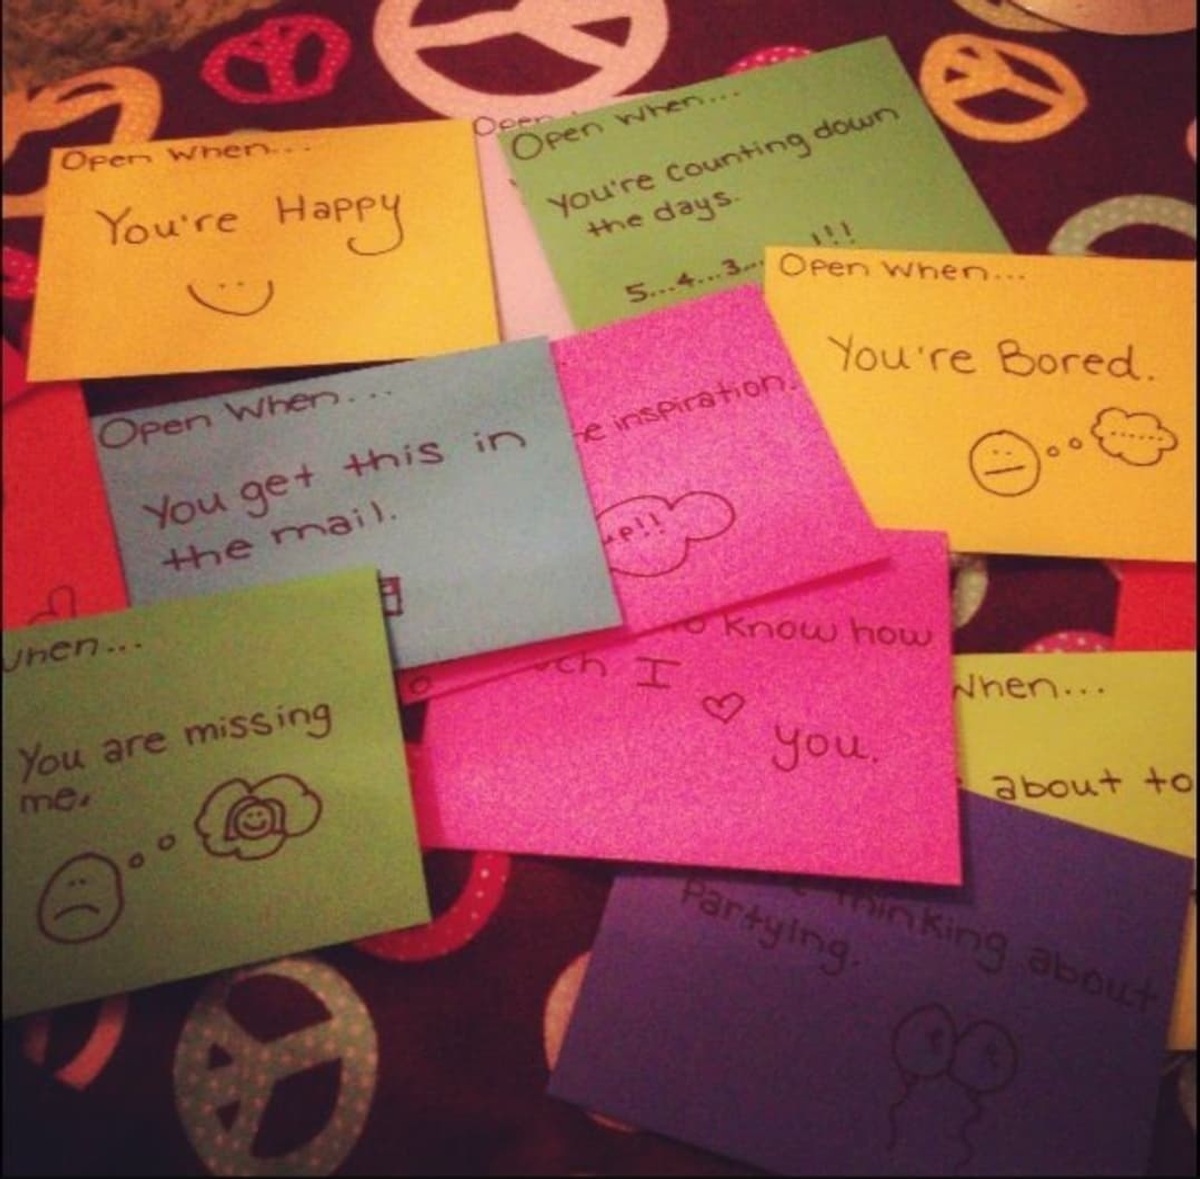 Open When...
You're Happy
Open
Open When...
You're Counting down
the days.
5...4...3... 1!!!
Open When...
You're Bored.
Open When...
You get this in
the mail.
inspiration.
up!!
When...
You are missing
me.
to know how
I ♡
you.
When...
about to
thinking about
Partying.